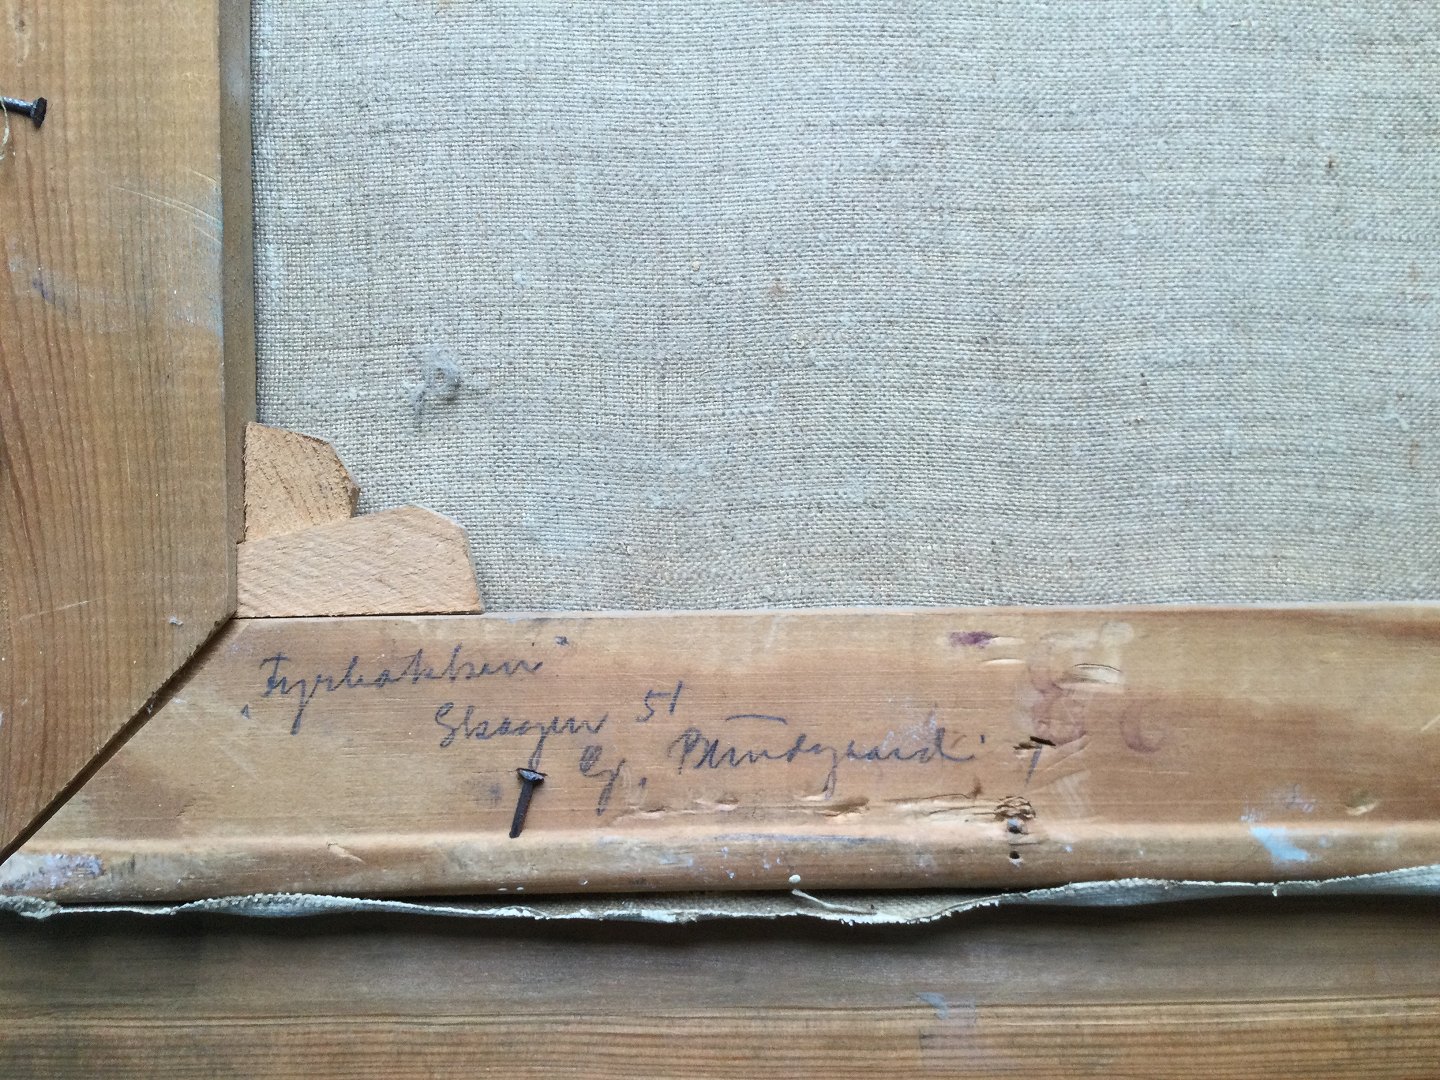 „Fyrbakken"
Skagen 51
Gj. Bundgaard